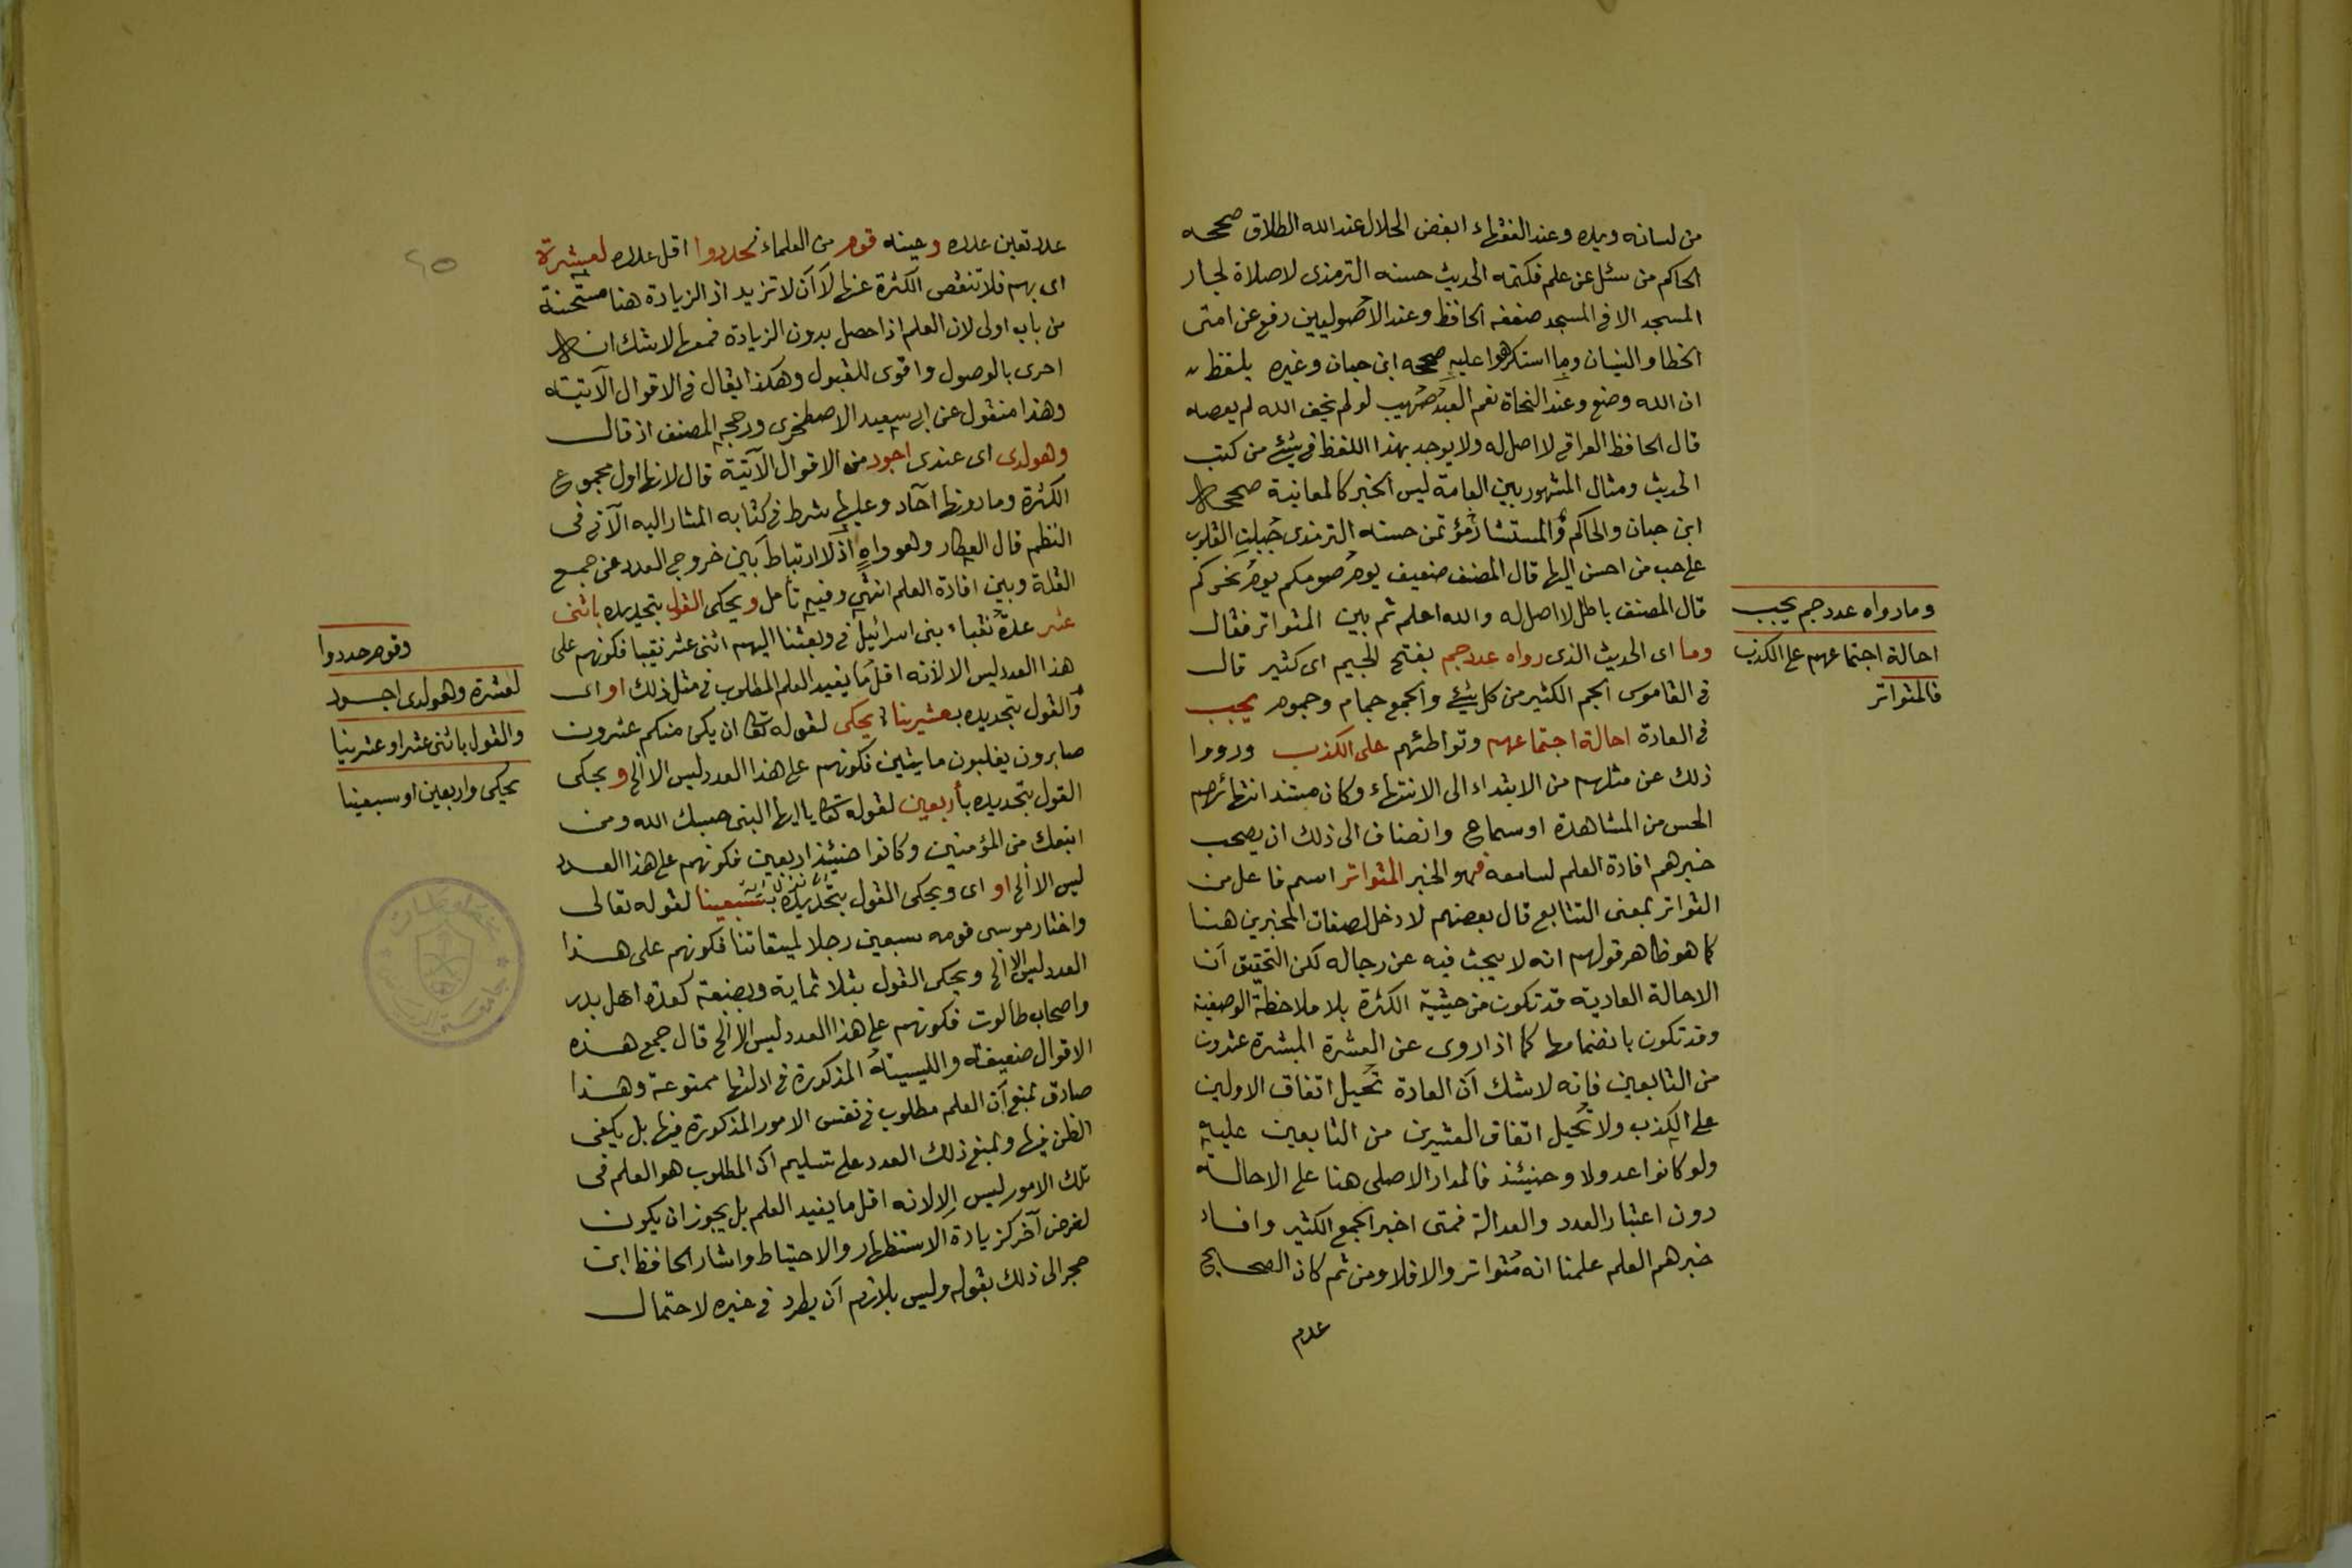 من لسانه ويده وعند الفقهاء ابغض الحلال عند الله الطلاق صححه
الحاكم من سئل عن علم فكتمه الحديث حسنه الترمذى لاصلاة لجار
المسجد الا فى المسجد ضعفه الحافظ وعند الاصوليين رفع عن امتى
الخطا والنسيان وما استكرهوا عليه صححه ابن حبان وغيره بلفظ
ان الله وضع وعند النحاة نعم العبد صهيب لو لم يخف الله لم يعصه
قال الحافظ العراقى لا اصل له ولا يوجد بهذا اللفظ فى شئ من كتب
الحديث ومثال المشهور بين العامة ليس الخبر كالمعانية صححها
ابن حبان والحاكم والمستشار مؤتمن حسنه الترمذى جبلت القلوب
على حب من احسن اليها قال المصنف ضعيف يوم صومكم يوم نحركم
قال المصنف باطل لا اصل له والله اعلم ثم بين المتواتر فقال
وما اى الحديث الذى رواه عدد جم بفتح الجيم اى كثير قال
فى القاموس الجم الكثير من كل شئ والجمع جمام وجموم يجب
فى العادة احالة اجتماعهم وتواطئهم على الكذب ورووا
ذلك عن مثلهم من الابتداء الى الانتهاء وكان مستند انتهائهم
الحس من المشاهدة او سماع وانضاف الى ذلك ان يصحب
خبرهم افادة العلم لسامعه فهو الخبر المتواتر اسم فاعل من
التواتر بمعنى التتابع قال بعضهم لا دخل لصفات المخبرين هنا
كما هو ظاهر قولهم انه لا يبحث فيه عن رجاله لكن التحقيق ان
الاحالة العادية قد تكون من حيثية الكثرة بلا ملاحظة الوصفية
وقد تكون بانضمامها كما اذا روى عن العشرة المبشرة عشرون
من التابعين فانه لا شك ان العادة تحيل اتفاق الاولين
على الكذب ولا تحيل اتفاق العشرين من التابعين عليه
ولو كانوا عدولا وحينئذ فالمدار الاصلى هنا على الاحالة
دون اعتبار العدد والعدالة فمتى اخبر الجمع الكثير وافاد
خبرهم العلم علمنا انه متواتر والا فلا ومن ثم كان الصحابى
عدم
وما رواه عدد جم يجب
احالة اجتماعهم على الكذب
فالمتواتر
عدد تعين عدده وحينه قوم من العلماء حددوا اقل عدده لعشرة
اى بهم فلا تنقص الكثرة عنها لا ان لا تزيد اذ الزيادة هنا مستحنة
من باب اولى لان العلم اذا حصل بدون الزيادة فمعها لا شك انها
احرى بالوصول واقوى للقبول وهكذا يقال فى الاقوال الآتية
وهذا منقول عن ابى سعيد الاصطخرى ورجحه المصنف اذ قال
وهو لدى اى عندى اجود من الاقوال الآتية قال لانها اول مجموع
الكثرة وما دونها آحاد وعليها شرط فى كتابه المشار اليه الآتى فى
النظم قال العطار وهو واه اذ لا ارتباط بين خروج العدد عن جمع
القلة وبين افادة العلم انتهى وفيه تأمل ويحكى القول بتحديده باثنى
عشر عدة نقباء بنى اسرائيل فى وبعثنا اليهم اثنى عشر نقيبا فكونهم على
هذا العدد ليس الا لانه اقل ما يفيد العلم المطلوب فى مثل ذلك او اى
والقول بتحديده بعشرينا يحكى لقوله تعالى ان يكن منكم عشرون
صابرون يغلبون مايتين فكونهم على هذا العدد ليس الا الخ ويحكى
القول بتحديده بأربعين لقوله تعالى يا ايها النبى حسبك الله ومن
اتبعك من المؤمنين وكانوا حينئذ اربعين فكونهم على هذا العدد
ليس الا الخ او اى ويحكى القول بتحديده بسبعينا لقوله تعالى
واختار موسى قومه سبعين رجلا لميقاتنا فكونهم على هذا
العدد ليس الا الخ ويحكى القول بثلاثماية وبضعة كعدة اهل بدر
واصحاب طالوت فكونهم على هذا العدد ليس الا الخ قال جمع هذه
الاقوال ضعيفة والليسية المذكورة فى ادلتها ممنوعة وهذا
صادق بمنع ان العلم مطلوب فى نفس الامور المذكورة فيها بل يكفى
الظن فيها وبمنع ذلك العدد على تسليم ان المطلوب هو العلم فى
تلك الامور ليس الا لانه اقل ما يفيد العلم بل يجوز ان يكون
لغرض آخر كزيادة الاستظهار والاحتياط واشار الحافظ ابن
حجر الى ذلك بقوله وليس بلازم ان يطرد فى غيره لاحتمال
وقوم حددوا
لعشرة وهو لدى اجود
والقول باثنى عشر او عشرينا
يحكى واربعين او سبعينا
٤٥